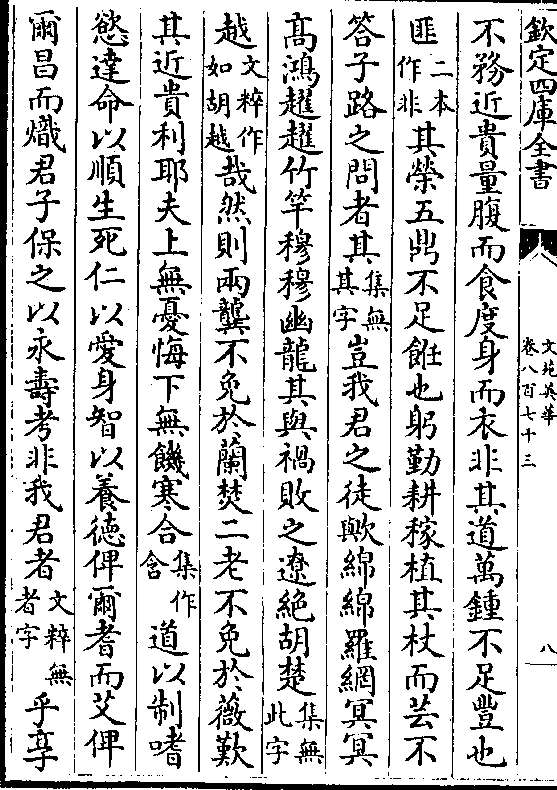 欽定四庫全書
文苑英華
卷八百七十三
八
不務近貴量腹而食度身而衣非其道萬鍾不足豐也
匪二本作非其榮五鼎不足餁也躬勤耕稼植其杖而芸不
答子路之問者其集無其字豈我君之徒歟綿綿羅網冥冥
髙鴻趯趯竹竿穆穆幽龍其與禍敗之遼絶胡楚集無此字
越文粹作如胡越哉然則兩龔不免於蘭焚二老不免於薇歎
其近貴利耶夫上無憂悔下無饑寒合集作含道以制嗜
慾達命以順生死仁以愛身智以養德俾爾耆而艾俾
爾昌而熾君子保之以永壽考非我君者文粹無者字乎享